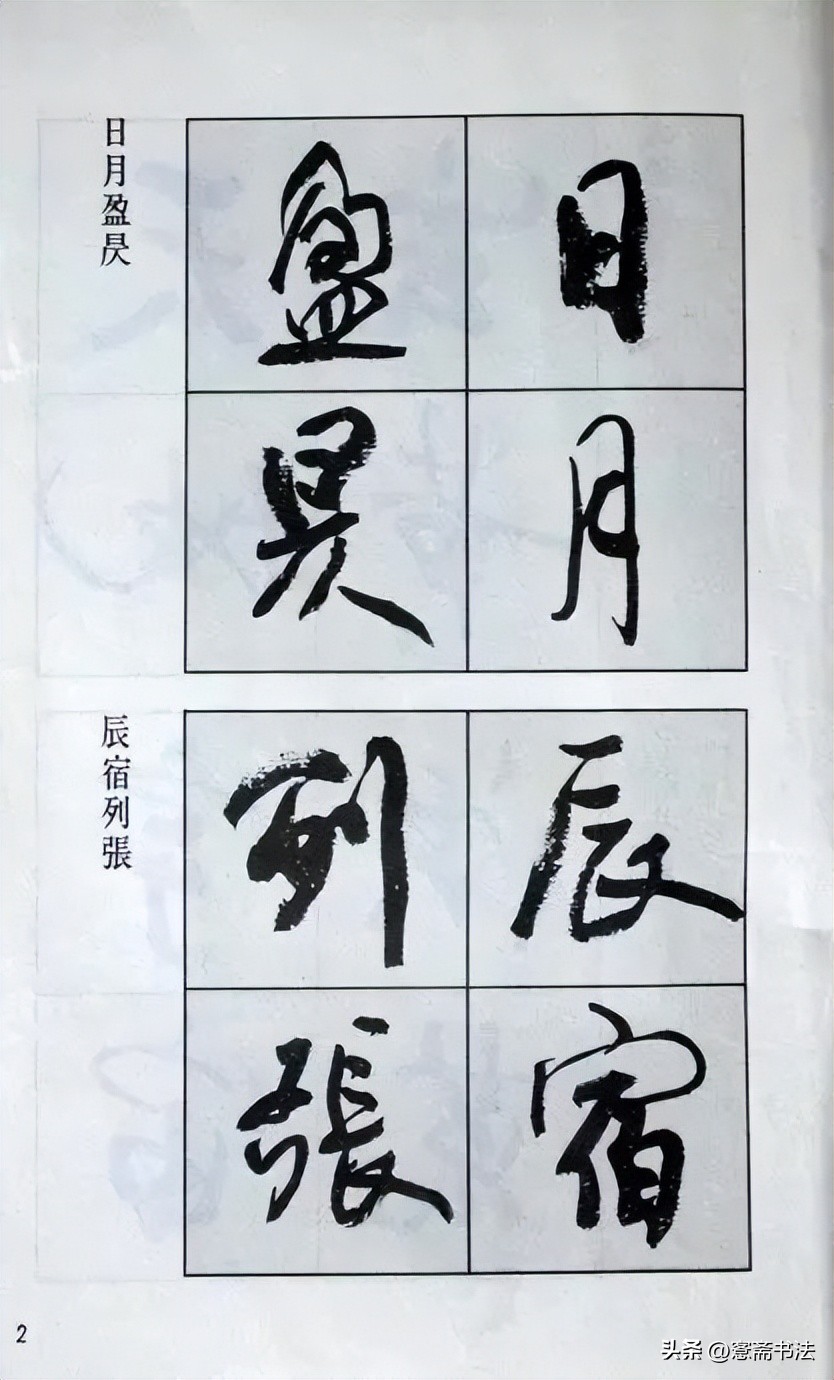 日月盈昃
日月
盈昃
辰宿列張
辰宿
列張
2
头条 @窻斋书法